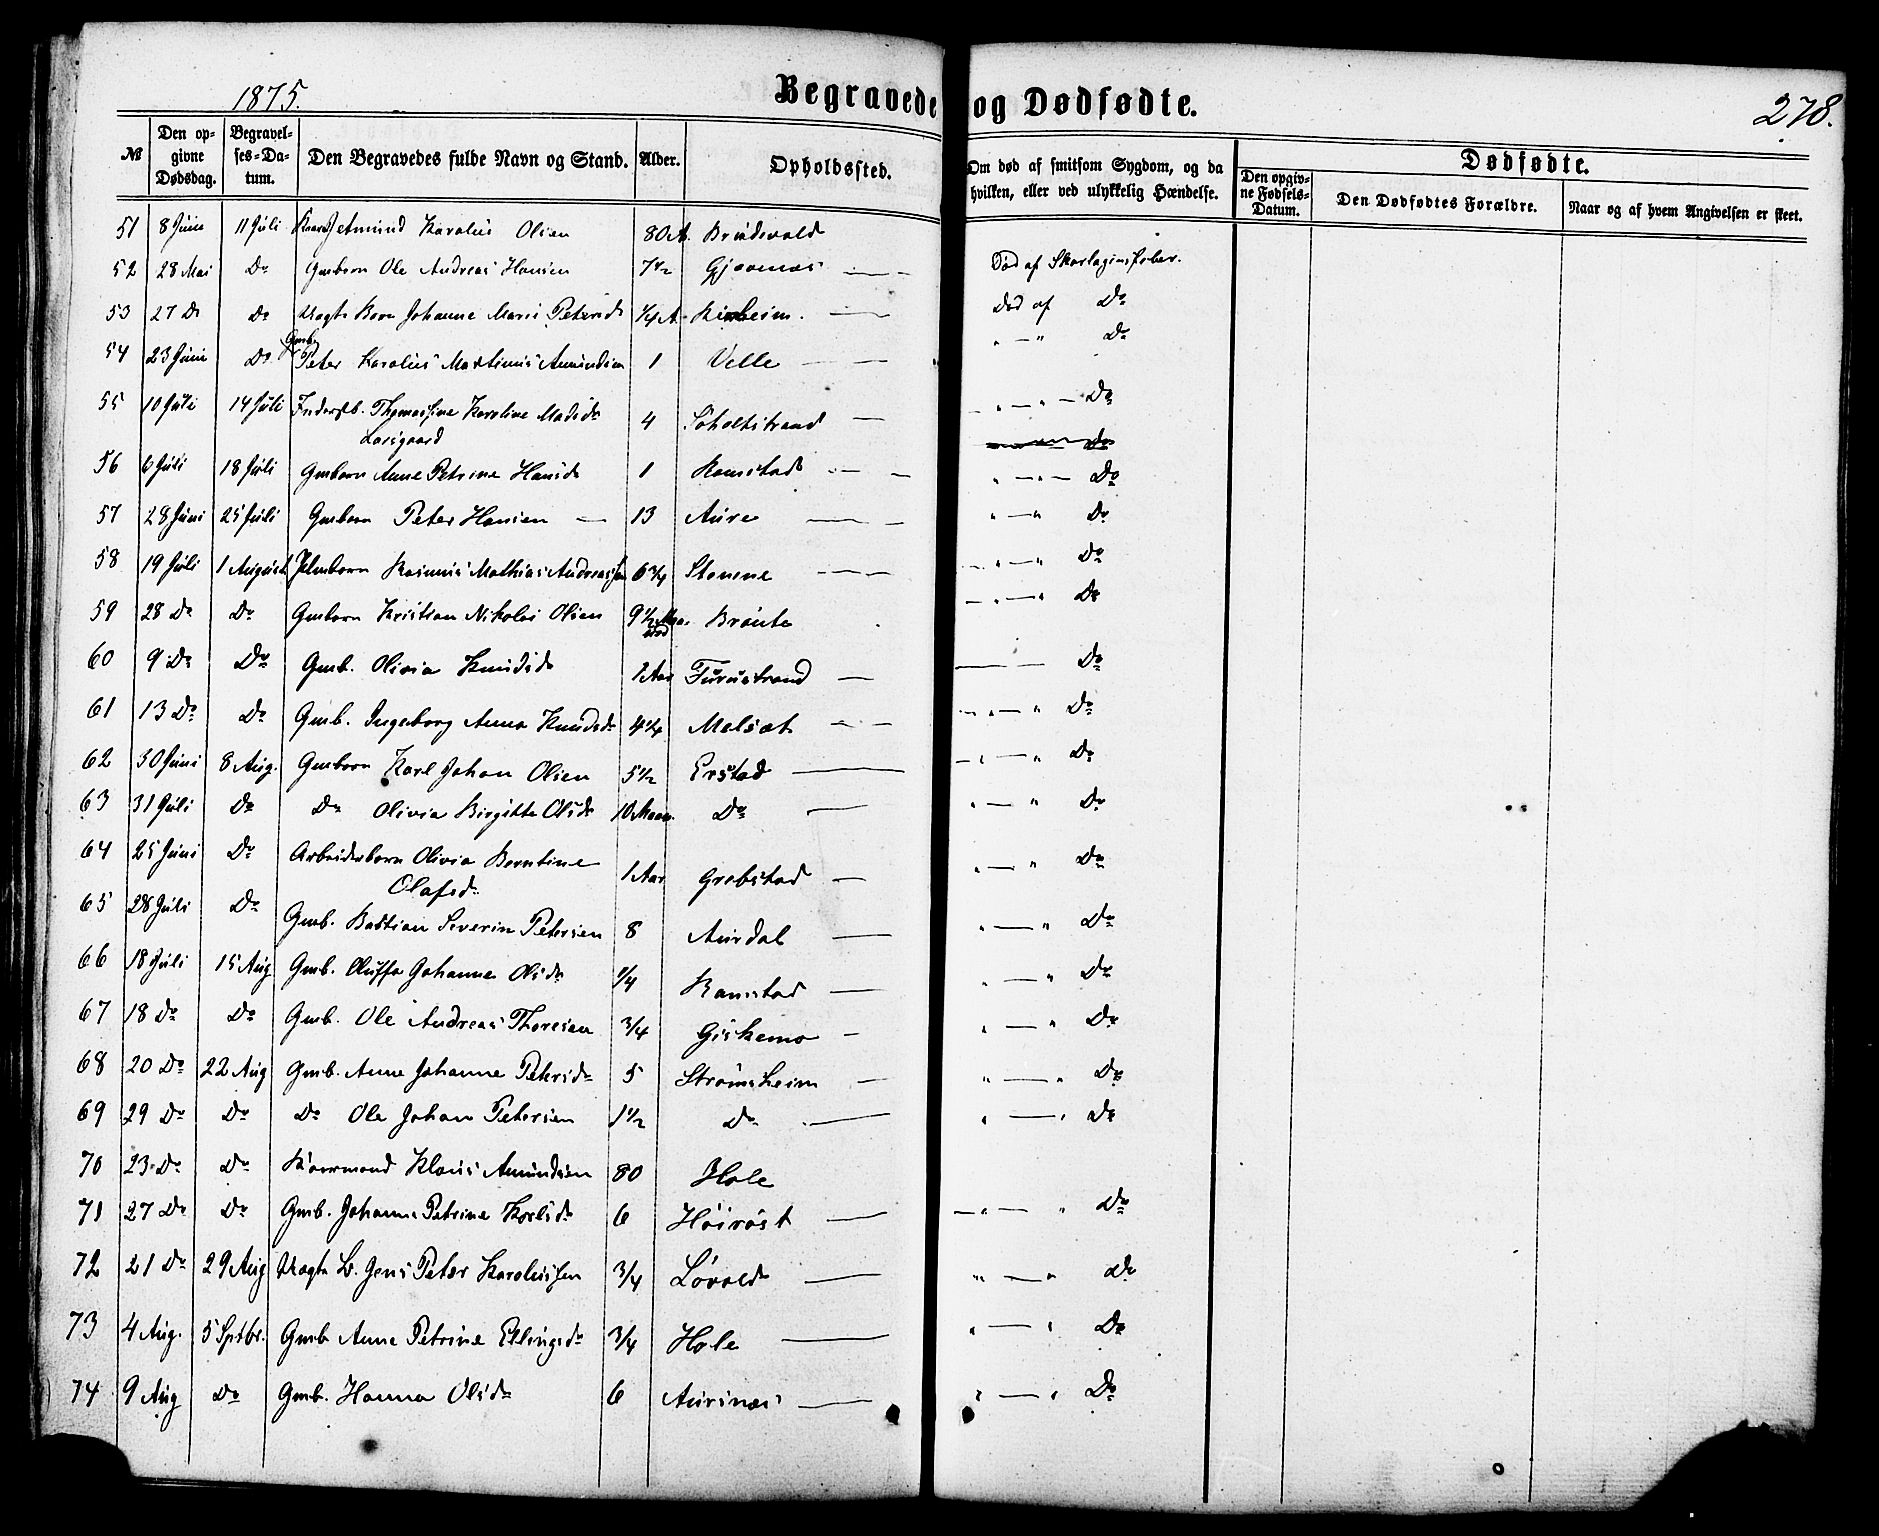 1875.
Begravede og Dødfødte.
278.
№
Den opgivne Dødsdag.
Begravelses-Datum.
Den Begravedes fulde Navn og Stand.
Alder.
Opholdssted.
Om død af smitsom Sygdom, og da hvilken, eller ved ulykkelig Hændelse.
Dødfødte.
Den opgivne Fødsels-Datum.
Den Dødfødtes Forældre.
Naar og af hvem Angivelsen er skeet.
51 8 Juni 11 Juli Jetmund Karolus Olsen 80 A.
52 28 Mai Do Gmbarn Ole Andreas Hansen 7 1/2 Gjævenæs Død af Skarlagensfeber.
53 27 Do Do Barn Johanne Marie Petersd 1/4 A. død af Do
54 23 Juni Do Gmb. Peter Karolus Martinus Amundsen 1 Velle " — " Do
55 10 Juli 14 Juli Inderstb. Thomassine Karoline Madsdr 4 Søholtstrand " — " — Do
Larsgaard
56 6 Juli 18 Juli Gmbarn Anne Petrine Hansdr 1 Ramstad " — " — Do
57 28 Juni 25 Juli Gmbarn Peter Hansen — 13 Aure " — " Do
58 19 Juli 1 August Rasmus Mathias Andreassen 6 3/4 Stavene " — " Do
59 28 Do Do Gmbarn Kristian Nikolai Olsen 9 1/2 Maaned " — " Do
60 9 Do Do Gmb. Olivia Knudsdr 1 Aar Furustrand — — Do
61 13 Do Do Gmb. Ingeborg Anna Knudsdr 4 1/4 Melsæt " — " Do
62 30 Juni 8 Aug. Gmbarn Karl Johan Olsen 5 1/2 Erstad " — " Do
63 31 Juli Do Do Olivia Birgitte Olsdr 10 Maan. Do " — " Do
64 25 Juni Do Arbeiderbarn Olivia Berntine 1 Aar Grebstad " — " Do
Olafsdr
65 28 Juli Do Gmb. Bastian Severin Petersen 8 Aurdal " — " Do
66 18 Juli 15 Aug Gmb. Oluffa Johanne Olsdr 1/4 Ramstad " — " Do
67 18 Do Do Gmb. Ole Andreas Thoresen 3/4 Giskemo " — " Do
68 20 Do 22 Aug Gmb. Anne Johanne Petersdr 5 Strømsheim " — " Do
69 29 Do Do Do Ole Johan Petersen 1 1/2 Do " — " Do
70 23 Do Do Kaarmand Klaus Amundsen 80 Hole
71 27 Do Do Gmb. Johanne Petrine Karlsdr 6 — " — " Do
72 21 Do 29 Aug B. Jens Peter Karolussen 3/4 Løvold " — " Do
73 4 Aug. 5 Sptbr. Gmb Anne Petrine Ellingsdr 3/4 Hole " — " Do
74 9 Aug Do Gmb. Hanna Olsdr 6 Aursnæs " — " Do